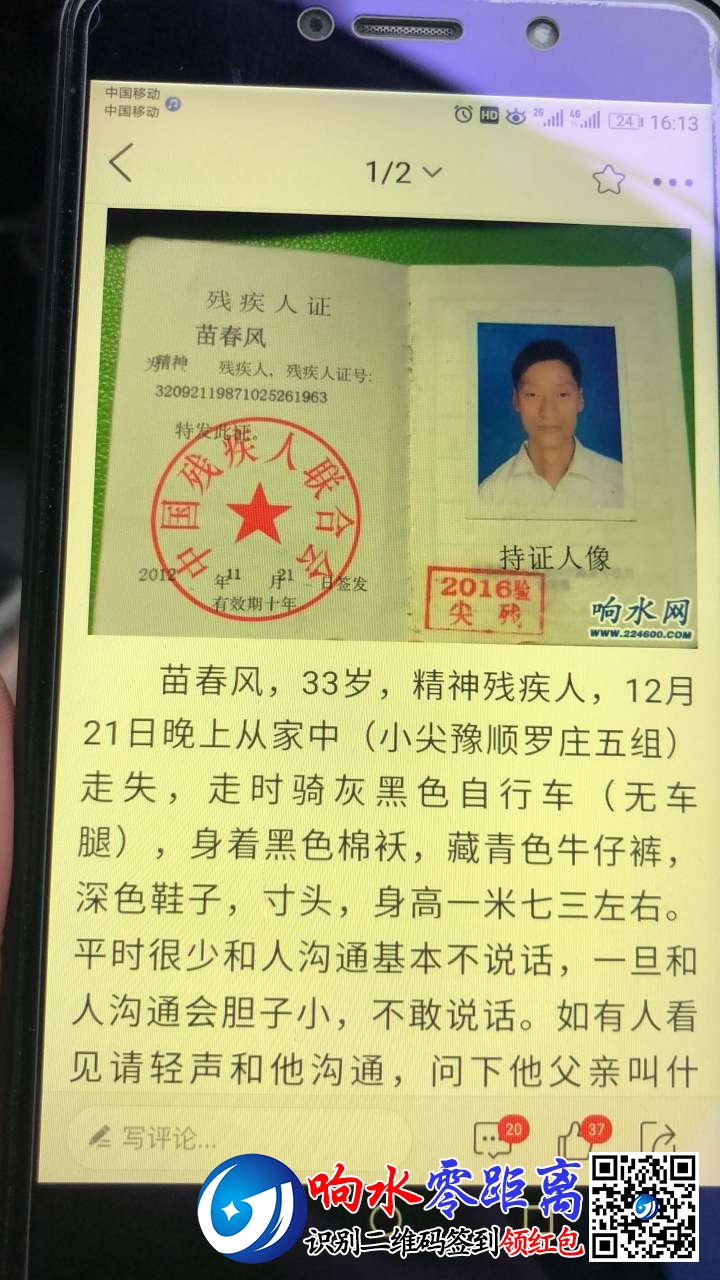 中国移动
中国移动
HD 2G 4G 24 16:13
1/2
残疾人证
苗春风
为精神 残疾人，残疾人证号:
32092119871025261963
特发此证。
中国残疾人联合会
2012 年 11 月 21 日签发
有效期十年
持证人像
2016验
尖 残
响水网
WWW.224600.COM
苗春风，33岁，精神残疾人，12月
21日晚上从家中（小尖豫顺罗庄五组）
走失，走时骑灰黑色自行车（无车
腿），身着黑色棉袄，藏青色牛仔裤，
深色鞋子，寸头，身高一米七三左右。
平时很少和人沟通基本不说话，一旦和
人沟通会胆子小，不敢说话。如有人看
见请轻声和他沟通，问下他父亲叫什
写评论...
20
37
响水零距离
识别二维码签到领红包